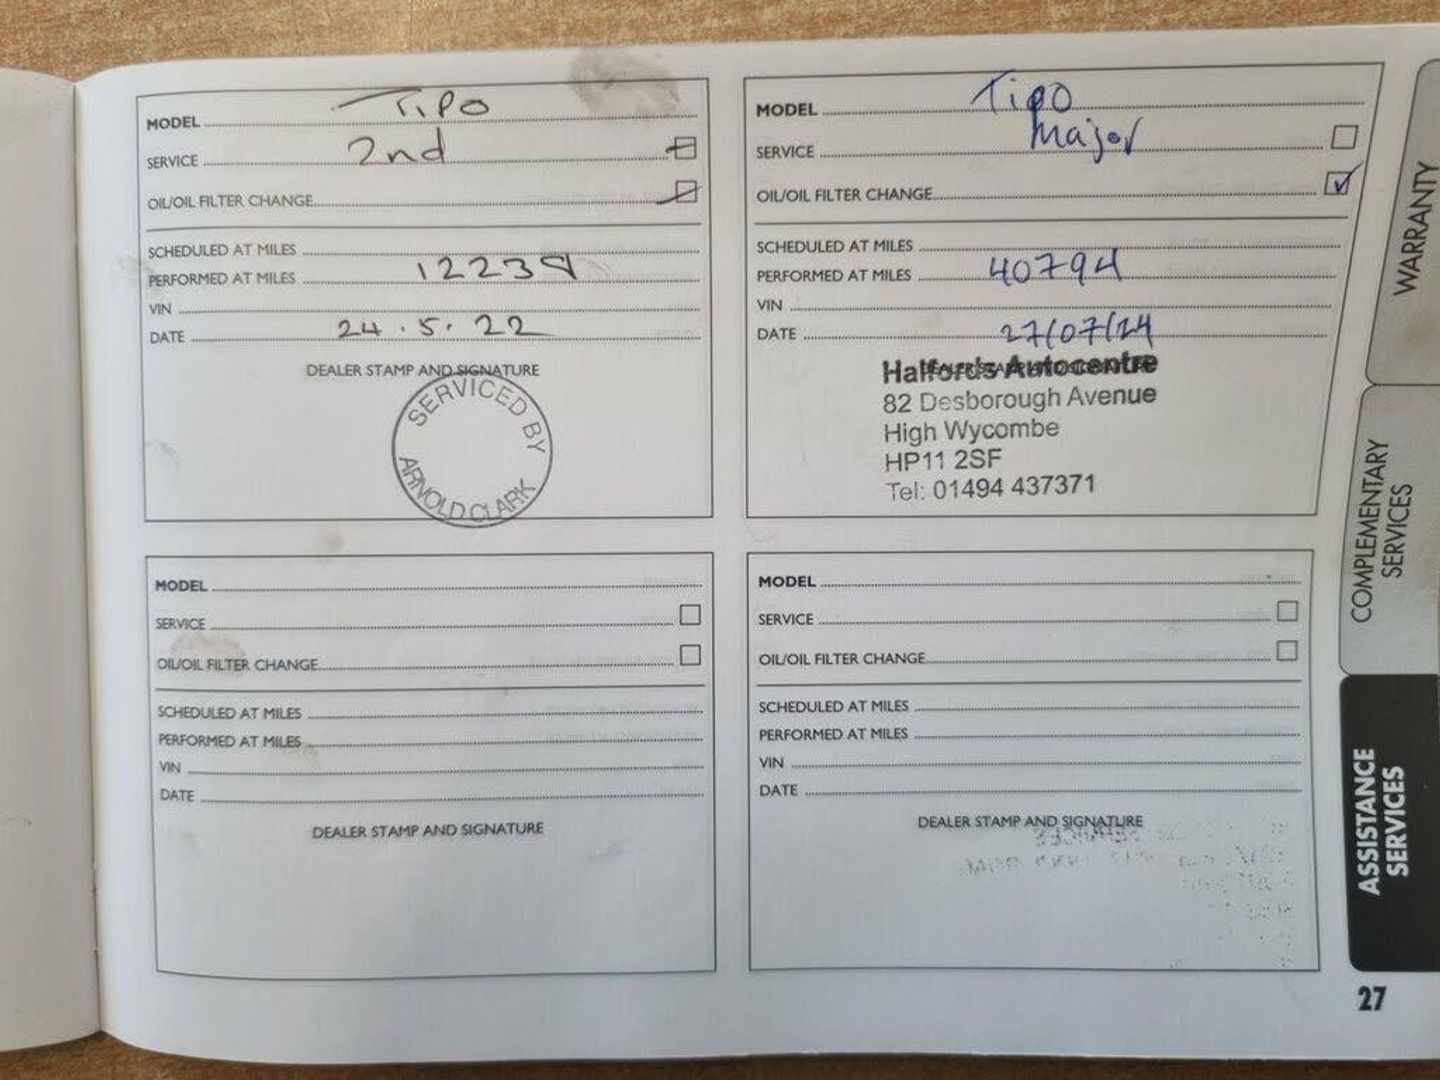 MODEL Tipo
SERVICE 2nd
OIL/OIL FILTER CHANGE
SCHEDULED AT MILES
PERFORMED AT MILES 12239
VIN
DATE 24.5.22
DEALER STAMP AND SIGNATURE
SERVICED BY
ARNOLD CLARK
MODEL Tipo
SERVICE Major
OIL/OIL FILTER CHANGE
SCHEDULED AT MILES
PERFORMED AT MILES 40794
VIN
DATE 27/07/24
Halfords Autocentre
82 Desborough Avenue
High Wycombe
HP11 2SF
Tel: 01494 437371
MODEL
SERVICE
OIL/OIL FILTER CHANGE
SCHEDULED AT MILES
PERFORMED AT MILES
VIN
DATE
DEALER STAMP AND SIGNATURE
MODEL
SERVICE
OIL/OIL FILTER CHANGE
SCHEDULED AT MILES
PERFORMED AT MILES
VIN
DATE
DEALER STAMP AND SIGNATURE
WARRANTY
COMPLEMENTARY
SERVICES
ASSISTANCE
SERVICES
27